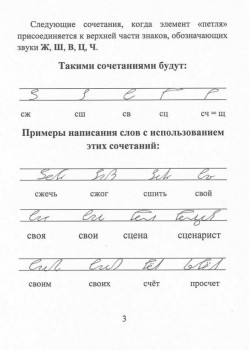 Следующие сочетания, когда элемент «петля»
присоединяется к верхней части знаков, обозначающих
звуки Ж, Ш, В, Ц, Ч.
Такими сочетаниями будут:
сж сш св сц сч = щ
Примеры написания слов с использованием
этих сочетаний:
сжечь сжог сшить свой
своя свои сцена сценарист
своим своих счёт просчет
3